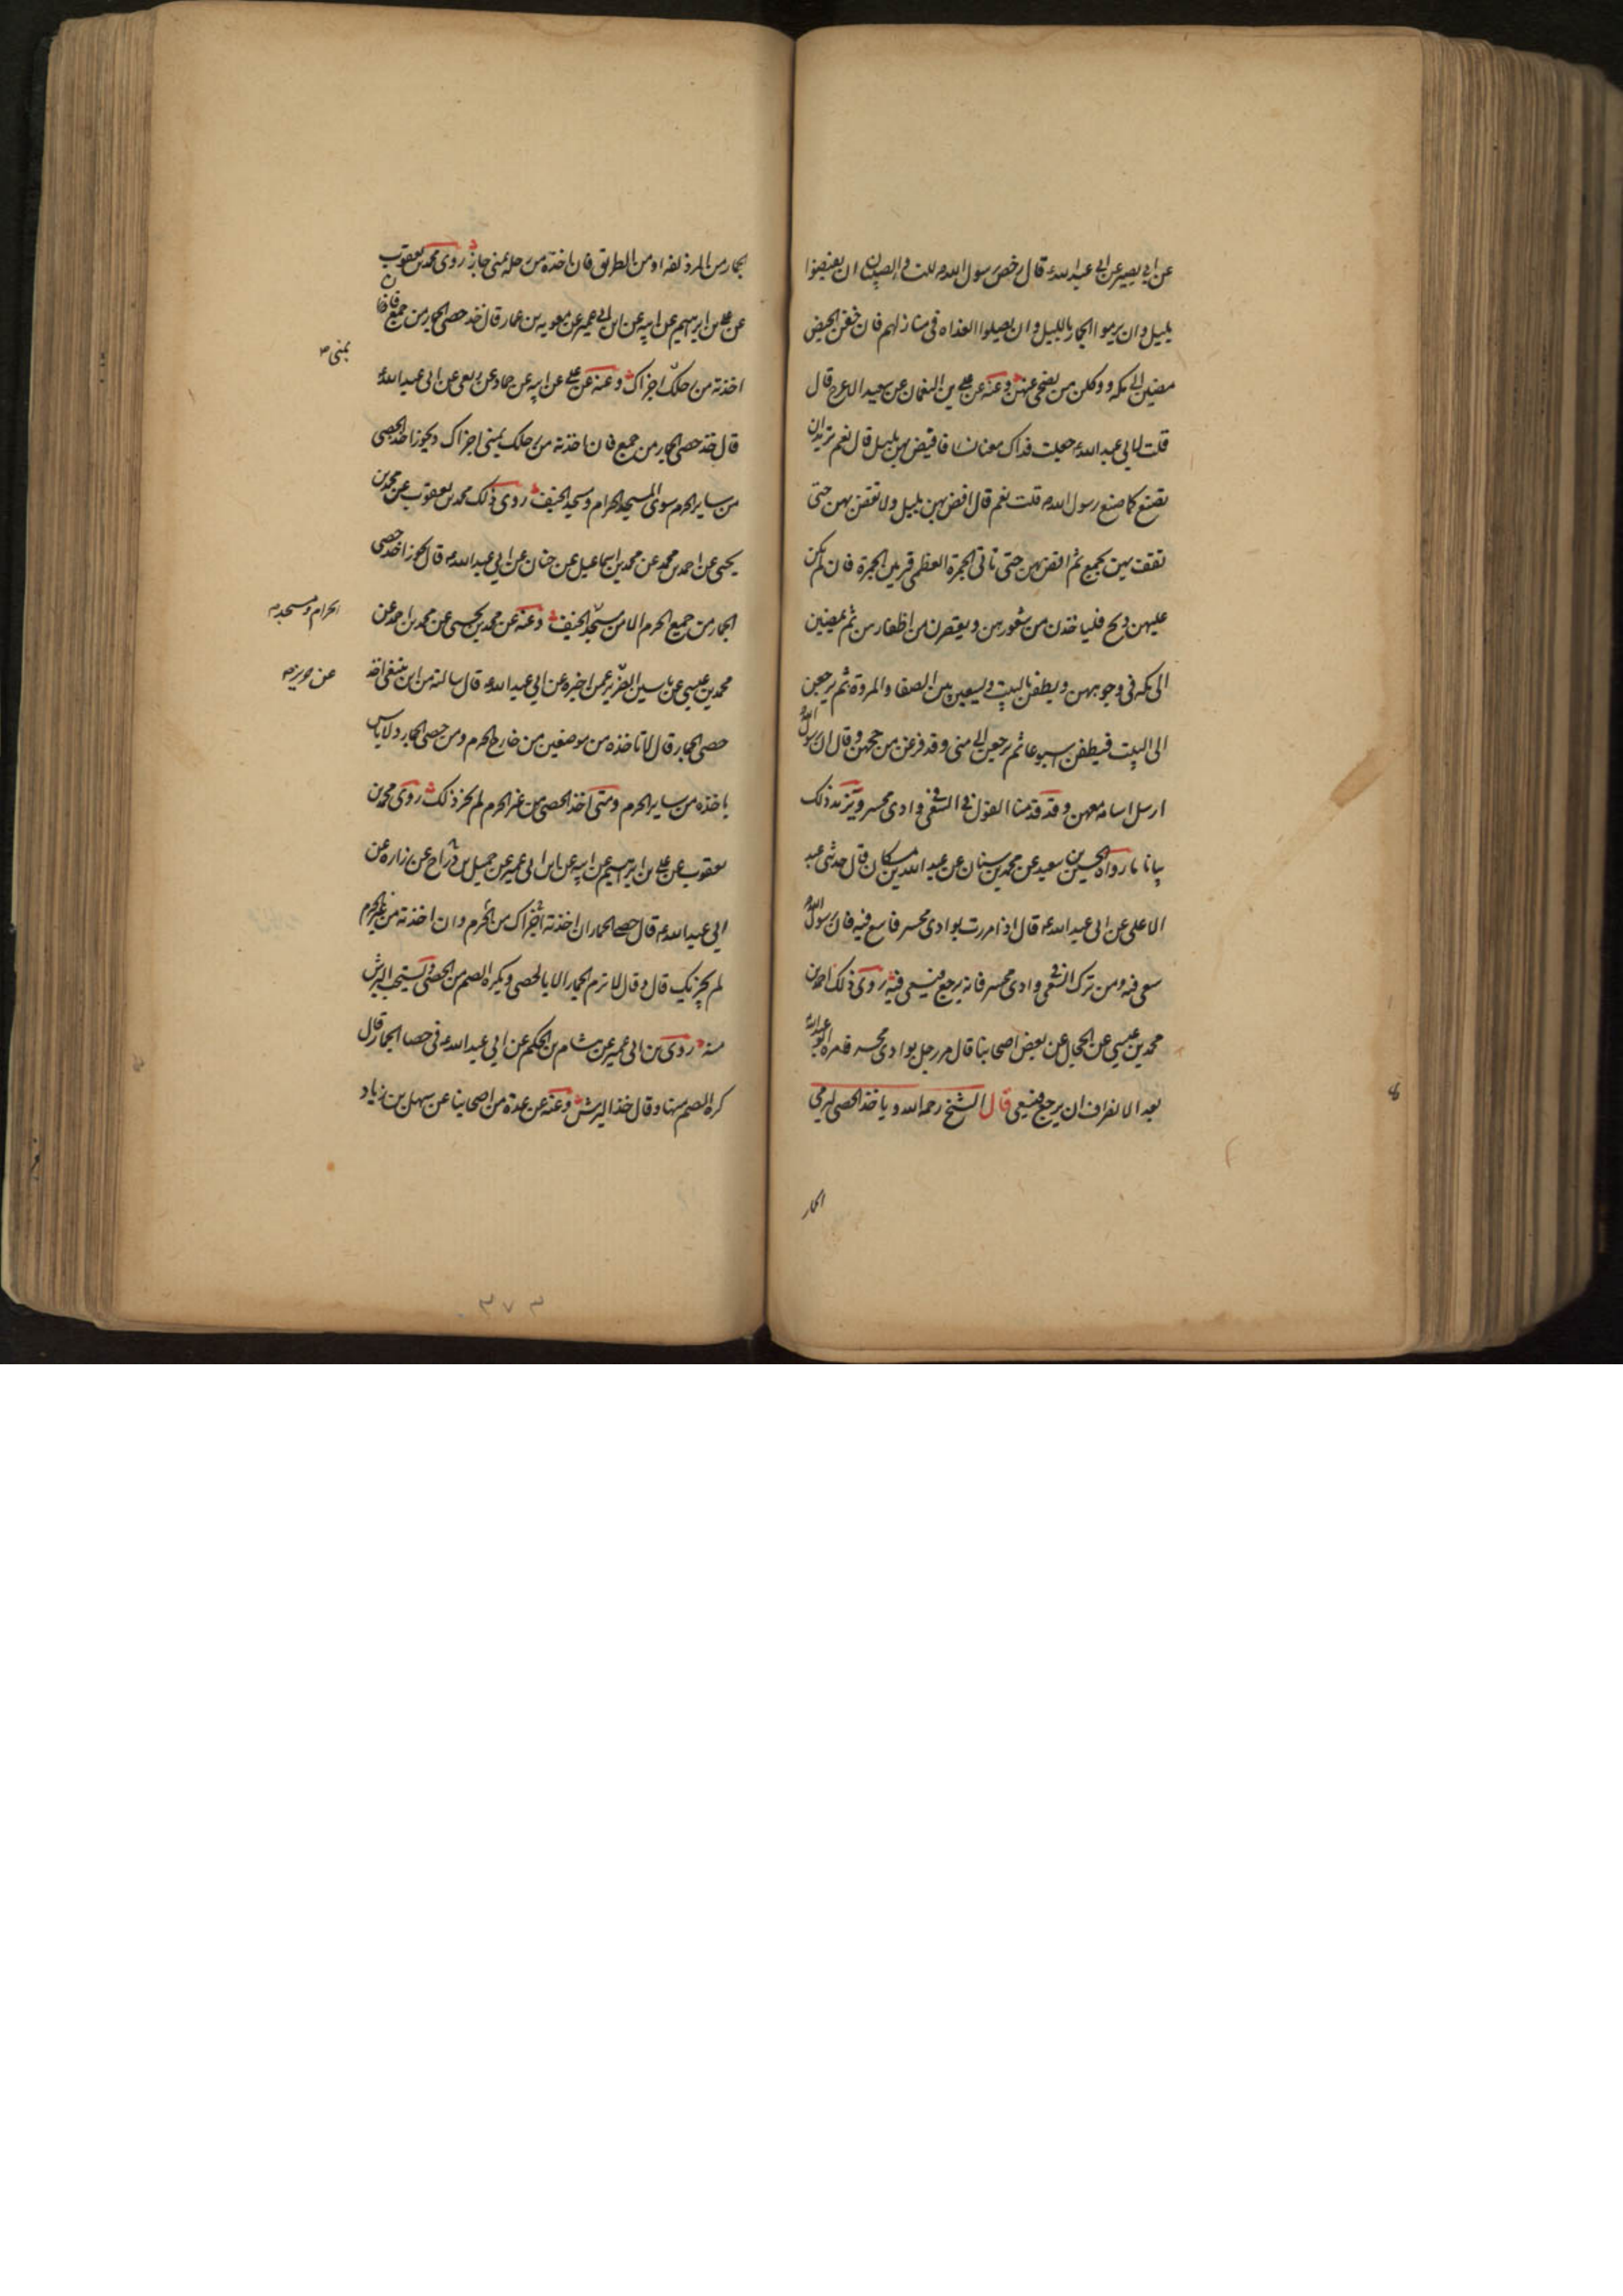 عن ابي بصير عن ابي عبد الله ع قال رخص رسول الله ص للنساء والصبيان ان يفيضوا
بليل وان يرموا الجمار بالليل وان يصلوا الغداة في منازلهم فان خفن الحيض
مضين الى مكة ووكلن من يضحي عنهن وعنه عن علي بن النعمان عن سعيد الاعرج قال
قلت لابي عبد الله ع جعلت فداك معنا نساء فافيض بهن بليل قال نعم تريد ان
تصنع كما صنع رسول الله ص قلت نعم قال افض بهن بليل ولا تفض بهن حتى
تقف بهن بجمع ثم افض بهن حتى تاتي الجمرة العظمى فيرمين الجمرة فان لم يكن
عليهن ذبح فلياخذن من شعورهن ويقصرن من اظفارهن ثم يمضين
الى مكة في وجوههن ويطفن بالبيت ويسعين بين الصفا والمروة ثم يرجعن
الى البيت فيطفن اسبوعا ثم يرجعن الى منى وقد فرغن من حجهن وقال ان رسول الله
ارسل اسامة معهن وقد قدمنا القول في السعي في وادي محسر ويزيد ذلك
بيانا ما رواه الحسين بن سعيد عن محمد بن سنان عن عبد الله بن مسكان قال حدثني عبد
الاعلى عن ابي عبد الله ع قال اذا مررت بوادي محسر فاسع فيه فان رسول الله
سعى فيه ومن ترك السعي في وادي محسر فانه يرجع فيسعى فيه روى ذلك احمد بن
محمد بن عيسى عن الحجال عن بعض اصحابنا قال مر رجل بوادي محسر فامره ابو عبد الله
بعد الانصراف ان يرجع فيسعى قال الشيخ رحمه الله وياخذ الحصى لرمي
الجمار
الجمار من المزدلفة او من الطريق فان اخذه من رحله بمنى جاز روى محمد بن يعقوب
عن علي بن ابرهيم عن ابيه عن ابن ابي عمير عن معوية بن عمار قال خذ حصى الجمار من جمع فان
اخذته من رحلك اجزاك وعنه عن علي عن ابيه عن حماد عن ربعي عن ابي عبد الله ع
بمنى
قال خذ حصى الجمار من جمع فان اخذته من رحلك بمنى اجزاك ويجوز اخذ الحصى
من ساير الحرم سوى المسجد الحرام ومسجد الخيف روى ذلك محمد بن يعقوب عن محمد بن
يحيى عن احمد بن محمد عن محمد بن اسماعيل عن حنان عن ابي عبد الله ع قال يجوز اخذ حصى
الجمار من جميع الحرم الا من مسجد الخيف وعنه عن محمد بن يحيى عن محمد بن احمد عن
الحرام ومسجد
محمد بن عيسى عن ياسين الضرير عمن اخبره عن ابي عبد الله ع قال سالته من اين ينبغي اخذ
عن حريز
حصى الجمار قال لا تاخذه من موضعين من خارج الحرم ومن حصى الجمار ولا باس
باخذه من ساير الحرم ومتى اخذ الحصى من غير الحرم لم يجز ذلك روى محمد بن
يعقوب عن علي بن ابرهيم عن ابيه عن ابن ابي عمير عن جميل بن دراج عن زرارة عن
ابي عبد الله ع قال حصى الجمار ان اخذته من الحرم اجزاك وان اخذته من غير الحرم
لم يجزيك قال وقال لا ترم الجمار الا بالحصى ويكره الصم من الحصى ويستحب البرش
منه روى بن ابي عمير عن هشام بن الحكم عن ابي عبد الله ع في حصا الجمار قال
كره الصم منها وقال خذ البرش وعنه عن عدة من اصحابنا عن سهل بن زياد
٣٧٣